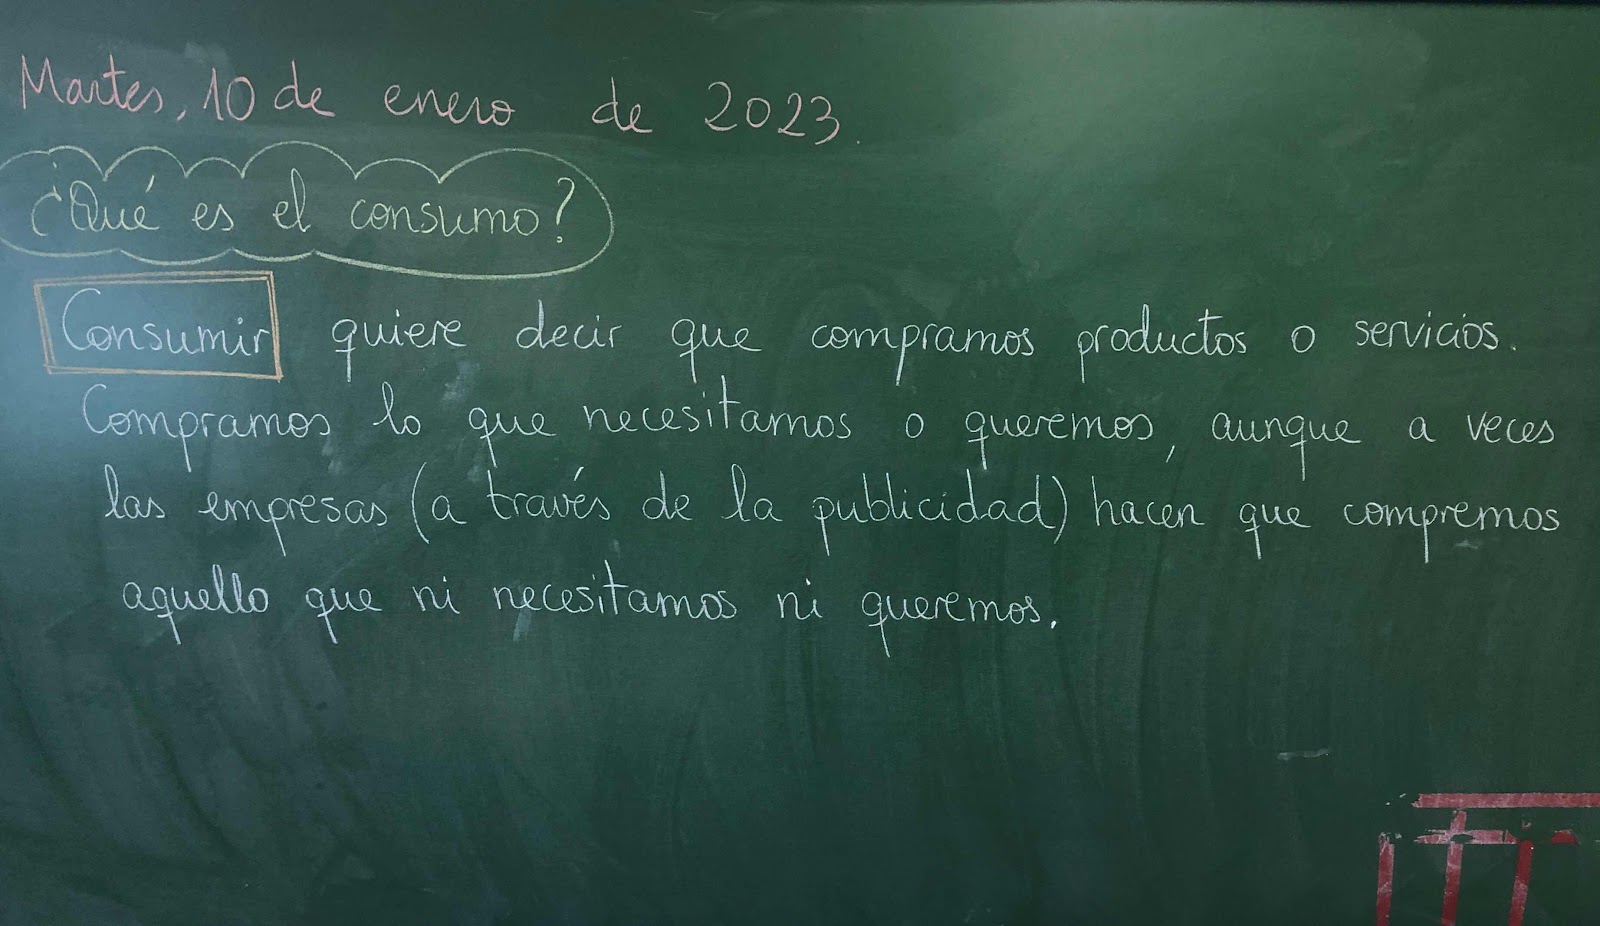 Martes, 10 de enero de 2023.
¿Qué es el consumo?
Consumir quiere decir que compramos productos o servicios.
Compramos lo que necesitamos o queremos, aunque a veces
las empresas (a través de la publicidad) hacen que compremos
aquello que ni necesitamos ni queremos.